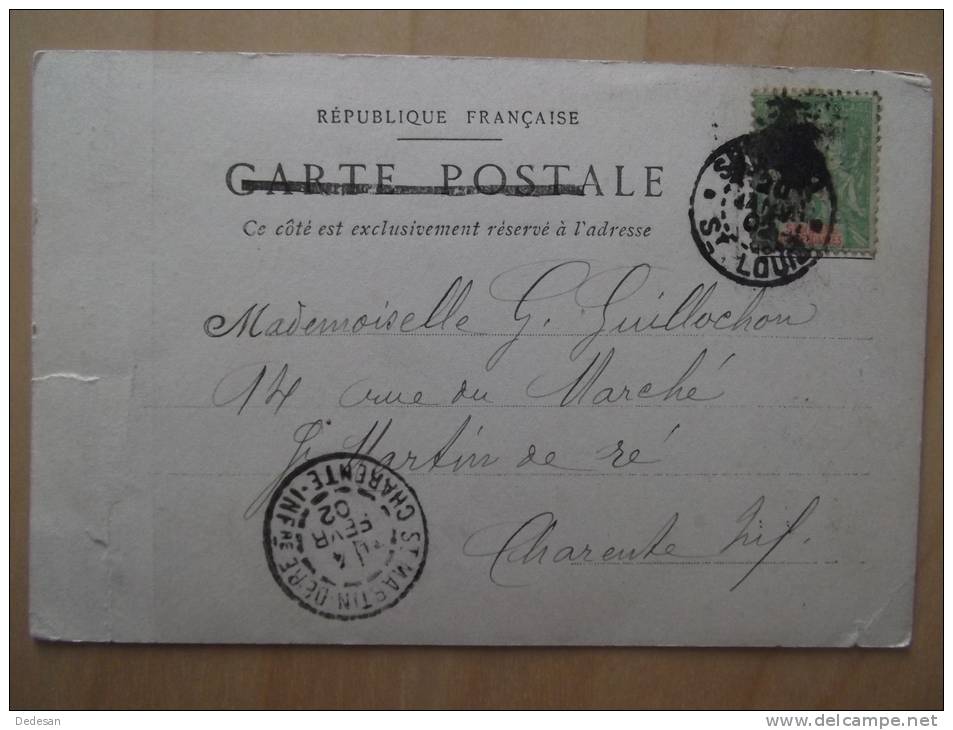 RÉPUBLIQUE FRANÇAISE
CARTE POSTALE
Ce côté est exclusivement réservé à l'adresse
Mademoiselle G. Guillochon
14 rue du Marché
St Martin de ré
Charente Inf.
ST MARTIN-DE RE
CHARENTE-INFRE
4
FEVR
02
ST LOUIS
Dedesan
www.delcampe.net